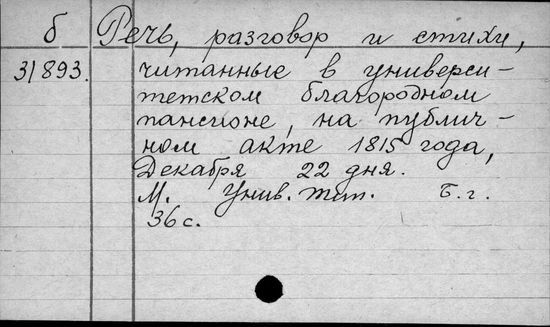 б Речь, разговор и стихи,
31893. читанные в универси-
тетском благородном
пансионе, на публич-
ном акте 1815 года,
Декабря 22 дня.
М. Унив. тип. Б.г.
36 с.